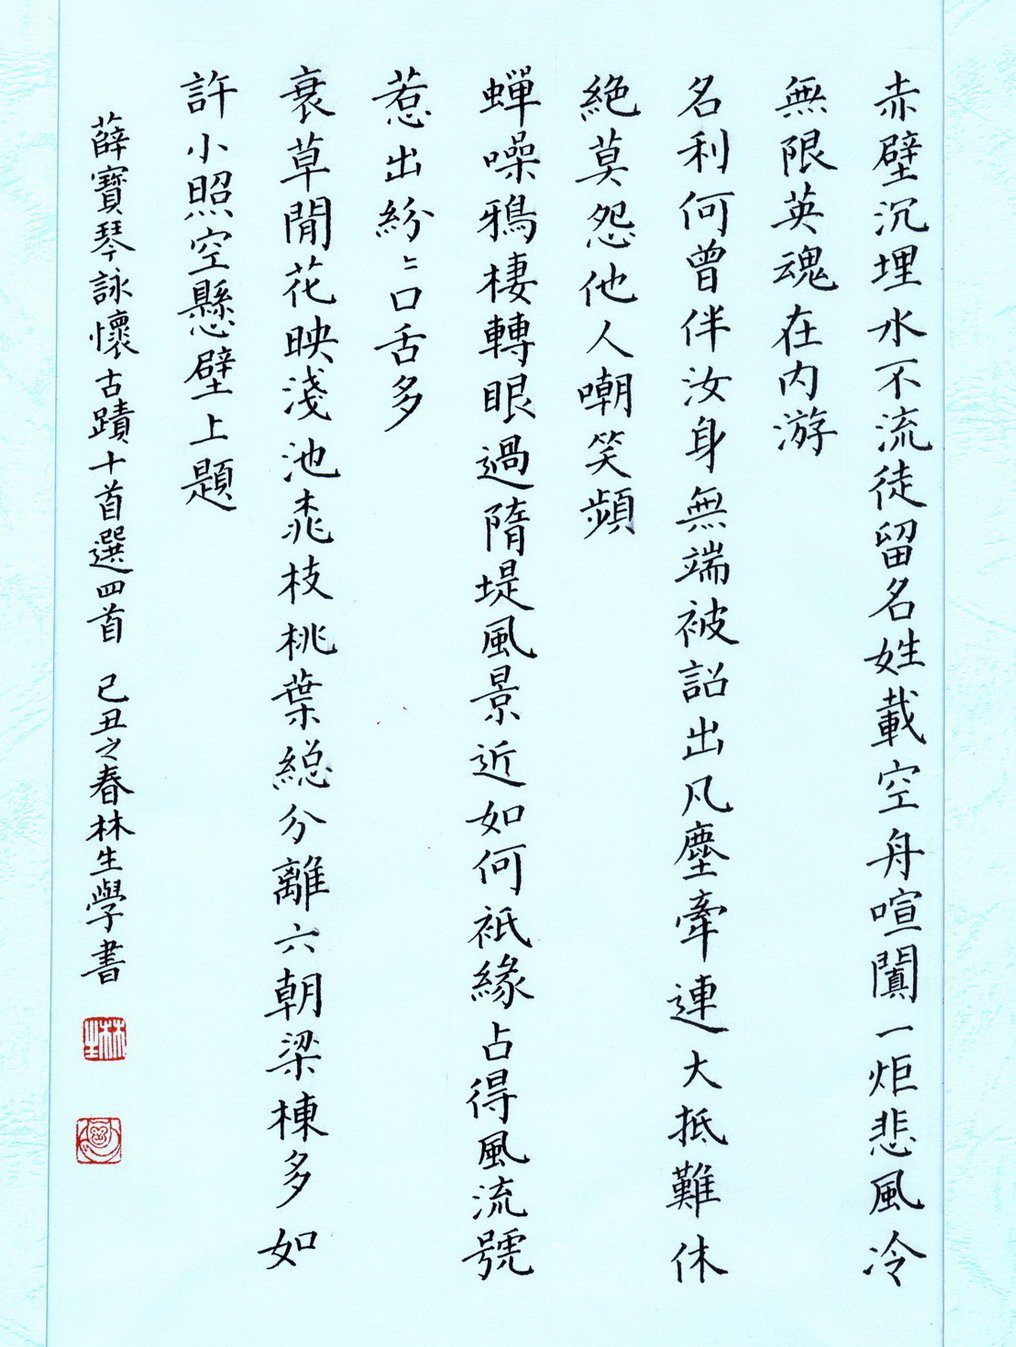 赤壁沉埋水不流徒留名姓載空舟喧闐一炬悲風冷
無限英魂在内游
名利何曾伴汝身無端被詔出凡塵牽連大抵難休
絶莫怨他人嘲笑頻
蟬噪鴉棲轉眼過隋堤風景近如何衹緣占得風流號
惹出紛〻口舌多
衰草閒花映淺池桃枝桃葉緫分離六朝梁棟多如
許小照空懸壁上題
薛寶琴詠懷古蹟十首選四首 己丑之春林生學書
林生